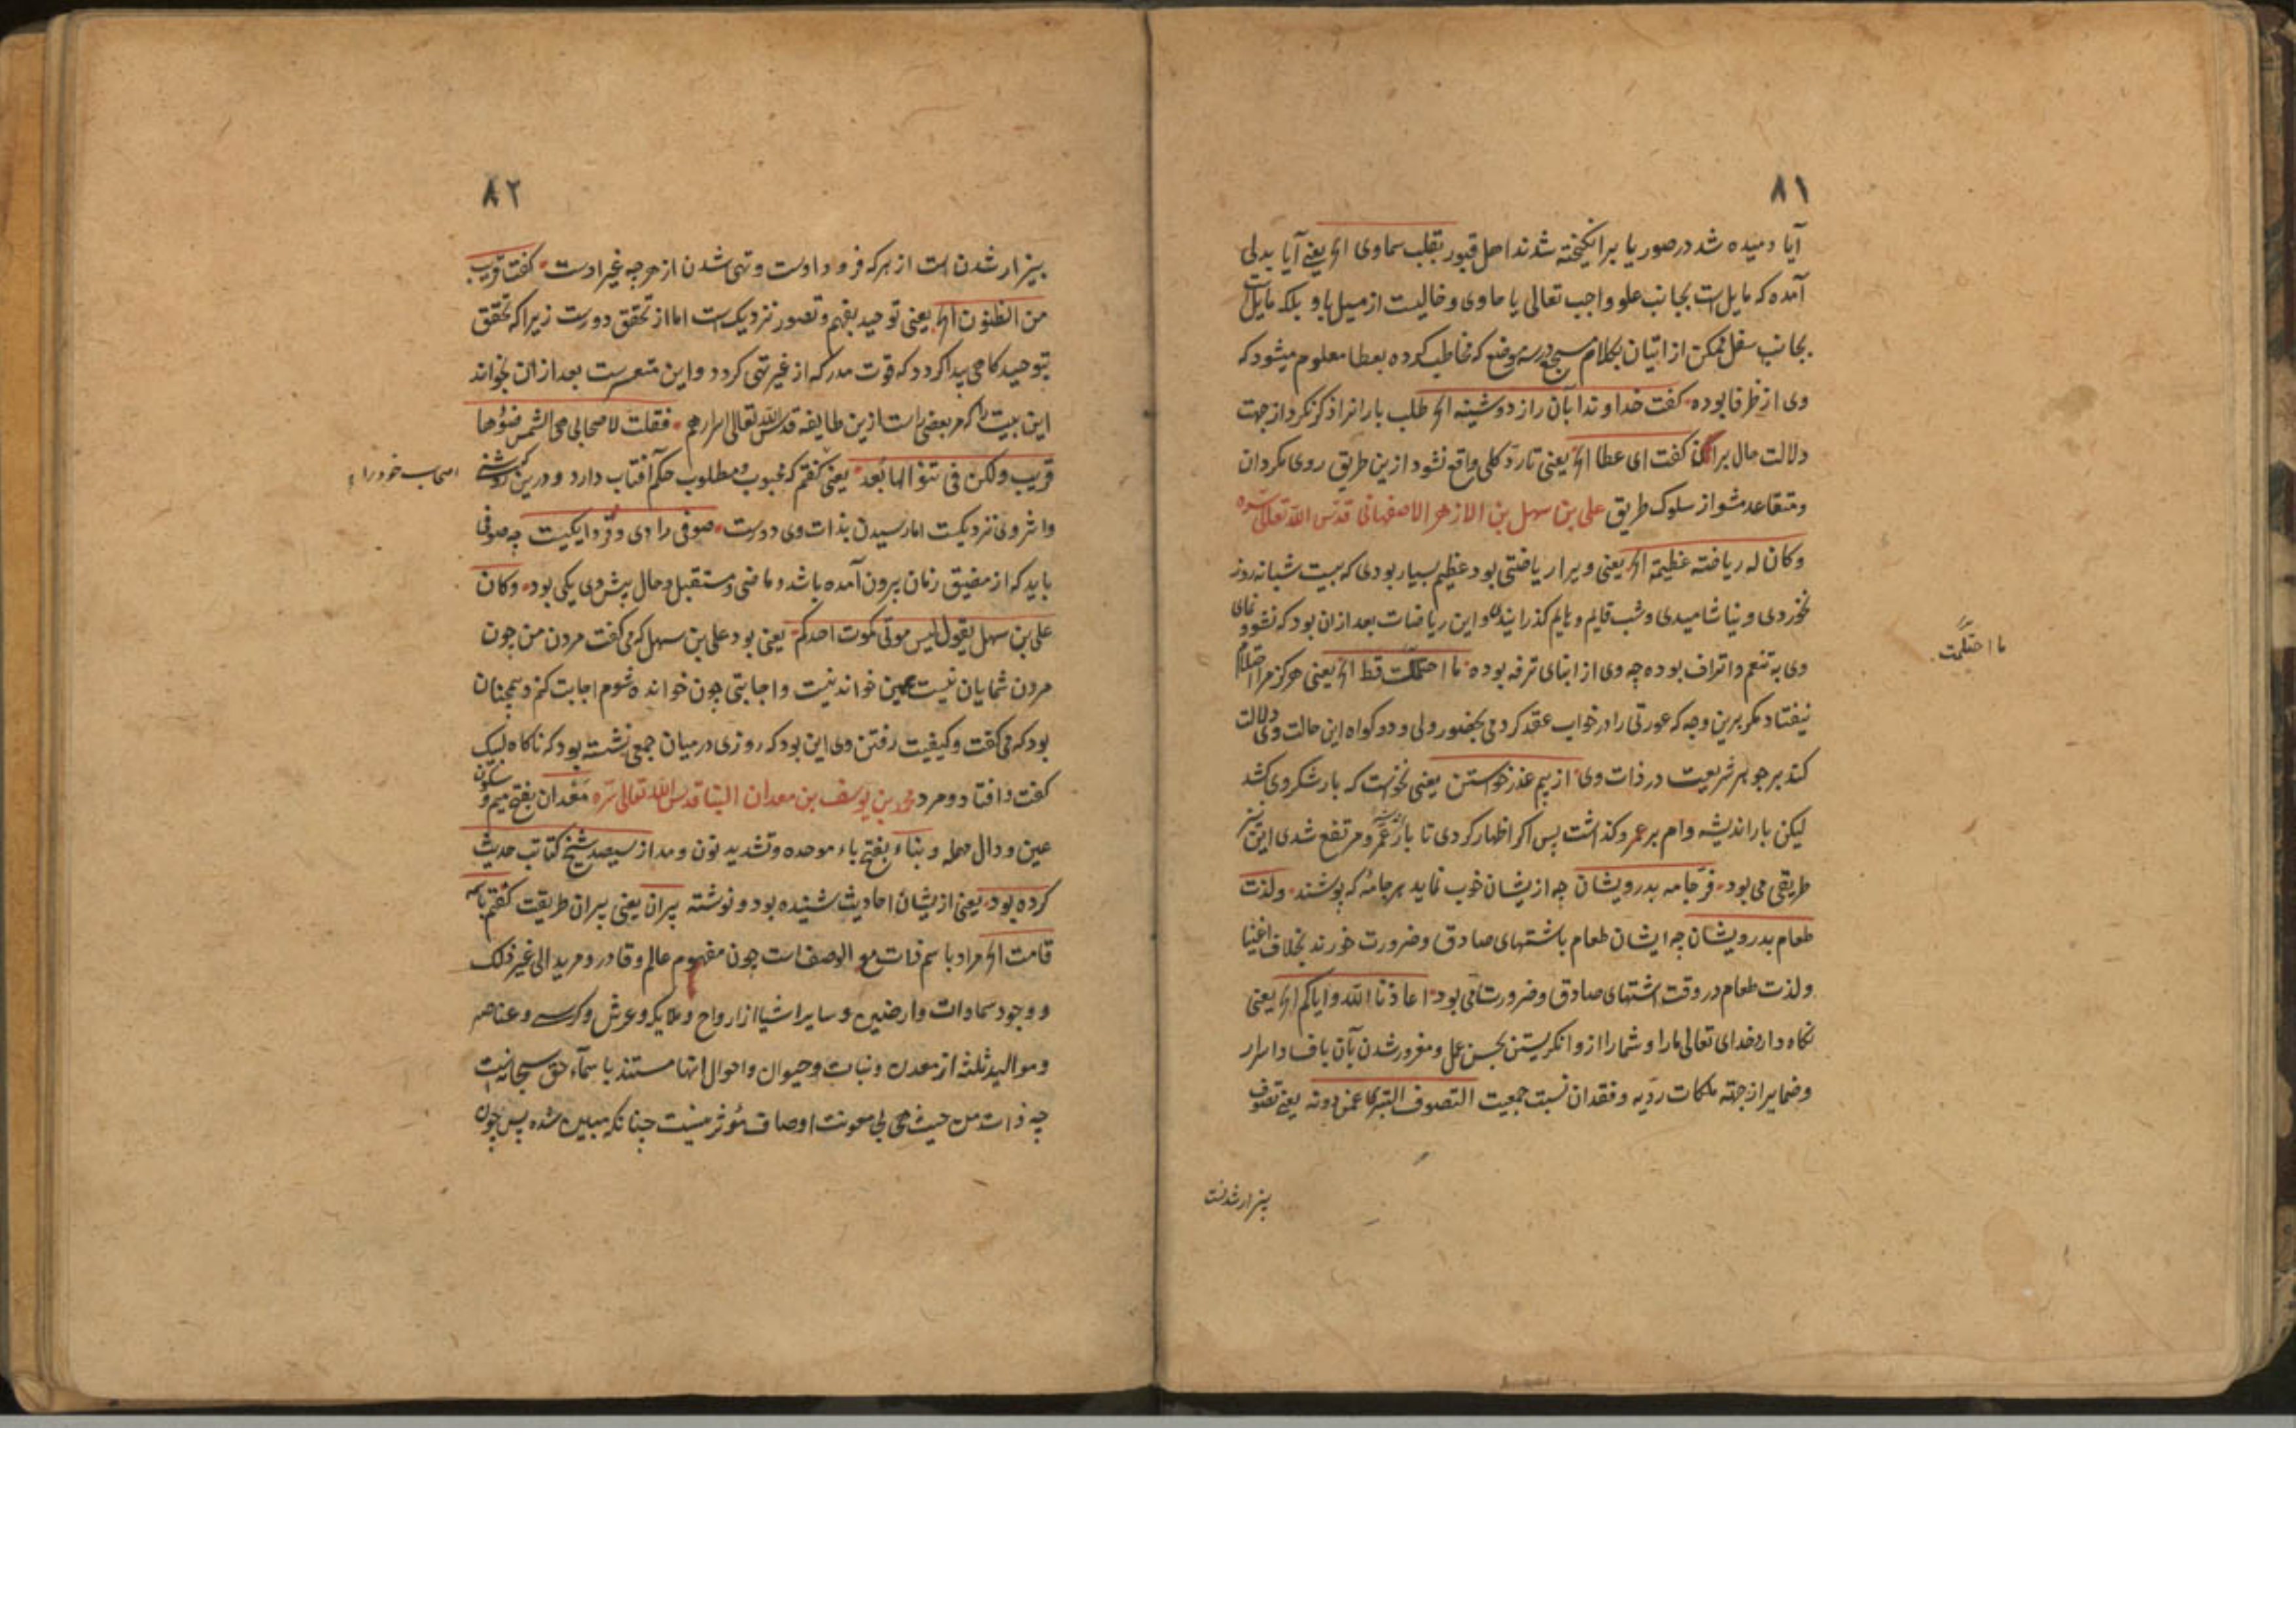 ۸۱
آیا دمیده شد در صور یا برانکیخته شدند اهل قبور بقلب سماوی الخ یعنی آیا بدلی
آمده که مایل است بجانب علو واجب تعالی یا ماوی و خالیست از میل باو بلکه مایل است
بجانب سفل ممکن از اتیان بکلام مسجع درین موضع که مخاطب کرده بعطا معلوم میشود که
وی از ظرفا بوده کفت خداوندا بآن راز دوشینه الخ طلب بارانرا ذکر نکرد از جهت
دلالت حال بران کفت ای عطا الخ یعنی تا رد کلی واقع نشود ازین طریق روی مکردان
و متقاعد مشو از سلوک طریق علی بن سهل بن الازهر الاصفهانی قدس الله تعالی سره
وکان له ریاضته عظیمة الخ یعنی ویرا ریاضتی بود عظیم بسیار بودی که بیست شبانه روز
نخوردی و نیاشامیدی و شب قایم و بایم کذرانیدی و این ریاضات بعد ازان بود که نشو و نمای
وی به تنعم و اتراف بوده چه وی از ابنای ترفه بوده ما احتملت قط الخ یعنی هرکز مرا احتلام
ما احتلمت
نیفتاد مکر برین وجه که عورتی را در خواب عقد کردمی بحضور ولی و دو کواه این حالت وی دلالت
کند بر جوهر شریعت در ذات وی از بیم عذر خواستن یعنی نخواست که بار شکر وی کشد
لیکن بار اندیشه وام بر عمرو کذاشت پس اکر اظهار کردی تا بار عمرو مرتفع شدی این نیز
طریقی می بود فر جامه بدرویشان چه ازیشان خوب نماید هر جامه که پوشند ولذت
طعام بدرویشان چه ایشان طعام باشتهای صادق و ضرورت خورند بخلاف اغنیا
و لذت طعام در وقت اشتهای صادق و ضرورت می بود اعاذنا الله وایاکم الخ یعنی
نکاه دارد خدای تعالی مارا و شمارا از وانکریستن بحسن عمل و مغرور شدن بآن با فساد اسرار
و ضمایر از جهته ملکات ردیه و فقدان نسبت جمعیت التصوف التبری عمن دونه یعنی تصوف
بیزار شدنست
۸۲
بیزار شدن است از هر که فرود اوست و تهی شدن از هرچه غیر اوست کفت قریب
من الظنون الخ یعنی توحید بفهم و تصور نزدیک است اما از تحقق دورست زیرا که تحقق
بتوحید کاهی پیدا کردد که قوت مدرکه از غیر تهی کردد و این متعسرست بعد ازان بخواند
این بیت را که مر بعضی راست ازین طایفه قدس الله تعالی اسرارهم فقلت لاصحابی هی الشمس ضؤها
قریب ولکن فی تناولها بعد یعنی کفتم که محبوب و مطلوب حکم آفتاب دارد و درین که روشنی
اصحاب خود را
و اثر وی نزدیکست اما رسیدن بذات وی دورست صوفی را دی و فردا یکیست چه صوفی
باید که از مضیق زمان بیرون آمده باشد و ماضی و مستقبل و حال پیش وی یکی بود وکان
علی بن سهل یقول لیس موتی کموت احدکم یعنی بود علی بن سهل که می کفت مردن من چون
مردن شمایان نیست همین خواندنیست و اجابتی چون خوانده شوم اجابت کنم و همچنان
بود که می کفت و کیفیت رفتن وی این بود که روزی درمیان جمعی نشسته بود که ناکاه لبیک
کفت و افتاد و مرد محمد بن یوسف بن معدان البنا قدس الله تعالی سره معدان بفتح میم و سکون
عین و دال مهمله و بناء بفتح باء موحده و تشدید نون و مد از سیصد شیخ کتابت حدیث
کرده بود یعنی ازیشان احادیث شنیده بود و نوشته پیران یعنی پیران طریقت کفتم باسمه
قامت الخ مراد باسم ذات مع الوصف است چون مفهوم عالم و قادر و مرید الی غیر ذلک
و وجود سماوات و ارضین و سایر اشیا از ارواح و ملایکه و عرش و کرسی و عناصر
و موالید ثلثه از معدن و نبات و حیوان و احوال انها مستند باسماء حق سبحانه است
چه ذات من حیث هی بی معونت اوصاف مؤثر نیست چنانکه مبین شده پس چون